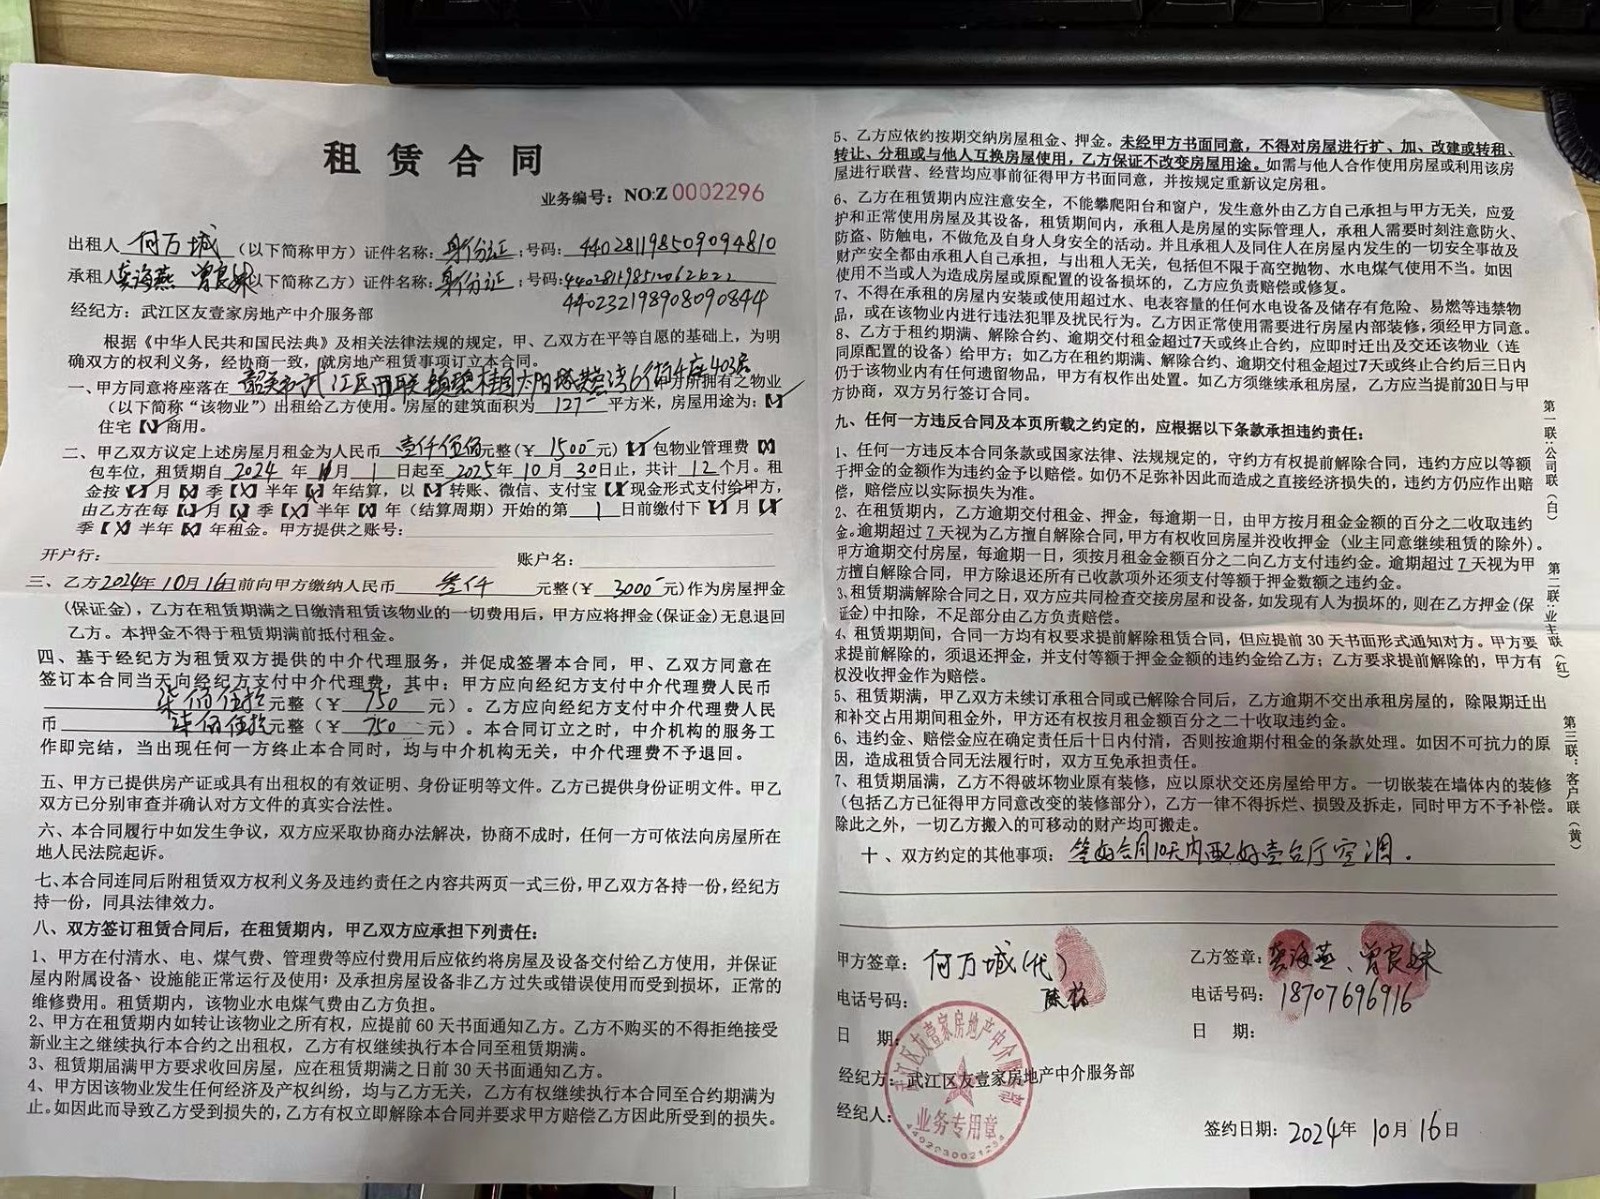 租赁合同
业务编号：NO:Z 0002296
出租人 何万城 （以下简称甲方）证件名称：身份证；号码：440281198509094810
承租人 龚海燕 曾良妹（以下简称乙方）证件名称：身份证；号码：
440232198908090844
经纪方：武江区友壹家房地产中介服务部
根据《中华人民共和国民法典》及相关法律法规的规定，甲、乙双方在平等自愿的基础上，为明
确双方的权利义务，经协商一致，就房地产租赁事项订立本合同。
一、甲方同意将座落在 韶关市武江区西联镇碧桂园太阳城 403房 甲方所拥有之物业
（以下简称“该物业”）出租给乙方使用。房屋的建筑面积为 127 平方米，房屋用途为：【✓】
住宅【✓】商用。
二、甲乙双方议定上述房屋月租金为人民币 壹仟伍佰 元整（¥ 1500 元）【✓】包物业管理费【X】
包车位，租赁期自 2024 年 11 月 1 日起至 2025 年 10 月 30 日止，共计 12 个月。租
金按【✓】月【X】季【X】半年【X】年结算，以【✓】转账、微信、支付宝【✓】现金形式支付给甲方，
由乙方在每【✓】月【X】季【X】半年【X】年（结算周期）开始的第 1 日前缴付下【✓】月【X】
季【X】半年【X】年租金。甲方提供之账号：
开户行： 账户名：
三、乙方2024年10月16日前向甲方缴纳人民币 叁仟 元整（¥ 3000 元）作为房屋押金
（保证金），乙方在租赁期满之日缴清租赁该物业的一切费用后，甲方应将押金（保证金）无息退回
乙方。本押金不得于租赁期满前抵付租金。
四、基于经纪方为租赁双方提供的中介代理服务，并促成签署本合同，甲、乙双方同意在
签订本合同当天向经纪方支付中介代理费，其中：甲方应向经纪方支付中介代理费人民币
柒佰伍拾 元整（¥ 750 元）。乙方应向经纪方支付中介代理费人民
币 柒佰伍拾 元整（¥ 750 元）。本合同订立之时，中介机构的服务工
作即完结，当出现任何一方终止本合同时，均与中介机构无关，中介代理费不予退回。
五、甲方已提供房产证或具有出租权的有效证明、身份证明等文件。乙方已提供身份证明文件。甲乙
双方已分别审查并确认对方文件的真实合法性。
六、本合同履行中如发生争议，双方应采取协商办法解决，协商不成时，任何一方可依法向房屋所在
地人民法院起诉。
七、本合同连同后附租赁双方权利义务及违约责任之内容共两页一式三份，甲乙双方各持一份，经纪方
持一份，同具法律效力。
八、双方签订租赁合同后，在租赁期内，甲乙双方应承担下列责任：
1、甲方在付清水、电、煤气费、管理费等应付费用后应依约将房屋及设备交付给乙方使用，并保证
屋内附属设备、设施能正常运行及使用；及承担房屋设备非乙方过失或错误使用而受到损坏，正常的
维修费用。租赁期内，该物业水电煤气费由乙方负担。
2、甲方在租赁期内如转让该物业之所有权，应提前 60 天书面通知乙方。乙方不购买的不得拒绝接受
新业主之继续执行本合约之出租权，乙方有权继续执行本合同至租赁期满。
3、租赁期届满甲方要求收回房屋，应在租赁期满之日前 30 天书面通知乙方。
4、甲方因该物业发生任何经济及产权纠纷，均与乙方无关，乙方有权继续执行本合同至合约期满为
止。如因此而导致乙方受到损失的，乙方有权立即解除本合同并要求甲方赔偿乙方因此所受到的损失。
5、乙方应依约按期交纳房屋租金、押金。未经甲方书面同意，不得对房屋进行扩、加、改建或转租、
转让、分租或与他人互换房屋使用，乙方保证不改变房屋用途。如需与他人合作使用房屋或利用该房
屋进行联营、经营均应事前征得甲方书面同意，并按规定重新议定房租。
6、乙方在租赁期内应注意安全，不能攀爬阳台和窗户，发生意外由乙方自己承担与甲方无关，应爱
护和正常使用房屋及其设备，租赁期间内，承租人是房屋的实际管理人，承租人需要时刻注意防火、
防盗、防触电，不做危及自身人身安全的活动。并且承租人及同住人在房屋内发生的一切安全事故及
财产安全都由承租人自己承担，与出租人无关，包括但不限于高空抛物、水电煤气使用不当。如因
使用不当或人为造成房屋或原配置的设备损坏的，乙方应负责赔偿或修复。
7、不得在承租的房屋内安装或使用超过水、电表容量的任何水电设备及储存有危险、易燃等违禁物
品，或在该物业内进行违法犯罪及扰民行为。乙方因正常使用需要进行房屋内部装修，须经甲方同意。
8、乙方于租约期满、解除合约、逾期交付租金超过7天或终止合约，应即时迁出及交还该物业（连
同原配置的设备）给甲方；如乙方在租约期满、解除合约、逾期交付租金超过7天或终止合约后三日内
仍于该物业内有任何遗留物品，甲方有权作出处置。如乙方须继续承租房屋，乙方应当提前30日与甲
方协商，双方另行签订合同。
九、任何一方违反合同及本页所载之约定的，应根据以下条款承担违约责任：
1、任何一方违反本合同条款或国家法律、法规规定的，守约方有权提前解除合同，违约方应以等额
于押金的金额作为违约金予以赔偿。如仍不足弥补因此而造成之直接经济损失的，违约方仍应作出赔
偿，赔偿应以实际损失为准。
2、在租赁期内，乙方逾期交付租金、押金，每逾期一日，由甲方按月租金金额的百分之二收取违约
金。逾期超过 7 天视为乙方擅自解除合同，甲方有权收回房屋并没收押金（业主同意继续租赁的除外）。
甲方逾期交付房屋，每逾期一日，须按月租金金额百分之二向乙方支付违约金。逾期超过 7 天视为甲
方擅自解除合同，甲方除退还所有已收款项外还须支付等额于押金数额之违约金。
3、租赁期满解除合同之日，双方应共同检查交接房屋和设备，如发现有人为损坏的，则在乙方押金（保
证金）中扣除，不足部分由乙方负责赔偿。
4、租赁期期间，合同一方均有权要求提前解除租赁合同，但应提前 30 天书面形式通知对方。甲方要
求提前解除的，须退还押金，并支付等额于押金金额的违约金给乙方；乙方要求提前解除的，甲方有
权没收押金作为赔偿。
5、租赁期满，甲甲乙双方未续订承租合同或已解除合同后，乙方逾期不交出承租房屋的，除限期迁出
和补交占用期间租金外，甲方还有权按月租金额百分之二十收取违约金。
6、违约金、赔偿金应在确定责任后十日内付清，否则按逾期付租金的条款处理。如因不可抗力的原
因，造成租赁合同无法履行时，双方互免承担责任。
7、租赁期届满，乙方不得破坏物业原有装修，应以原状交还房屋给甲方。一切嵌装在墙体内的装修
（包括乙方已征得甲方同意改变的装修部分），乙方一律不得拆烂、损毁及拆走，同时甲方不予补偿。
除此之外，一切乙方搬入的可移动的财产均可搬走。
十、双方约定的其他事项：签好合同10天内配好壹台厅空调.
甲方签章：何万城（代） 乙方签章：龚海燕、曾良妹
电话号码： 电话号码：18707696916
日 期： 日 期：
经纪方：武江区友壹家房地产中介服务部
经纪人：
签约日期：2024年 10月 16日
武江区友壹家房地产中介服务部
业务专用章
第一联：公司联（白）
第二联：业主联（红）
第三联：客户联（黄）